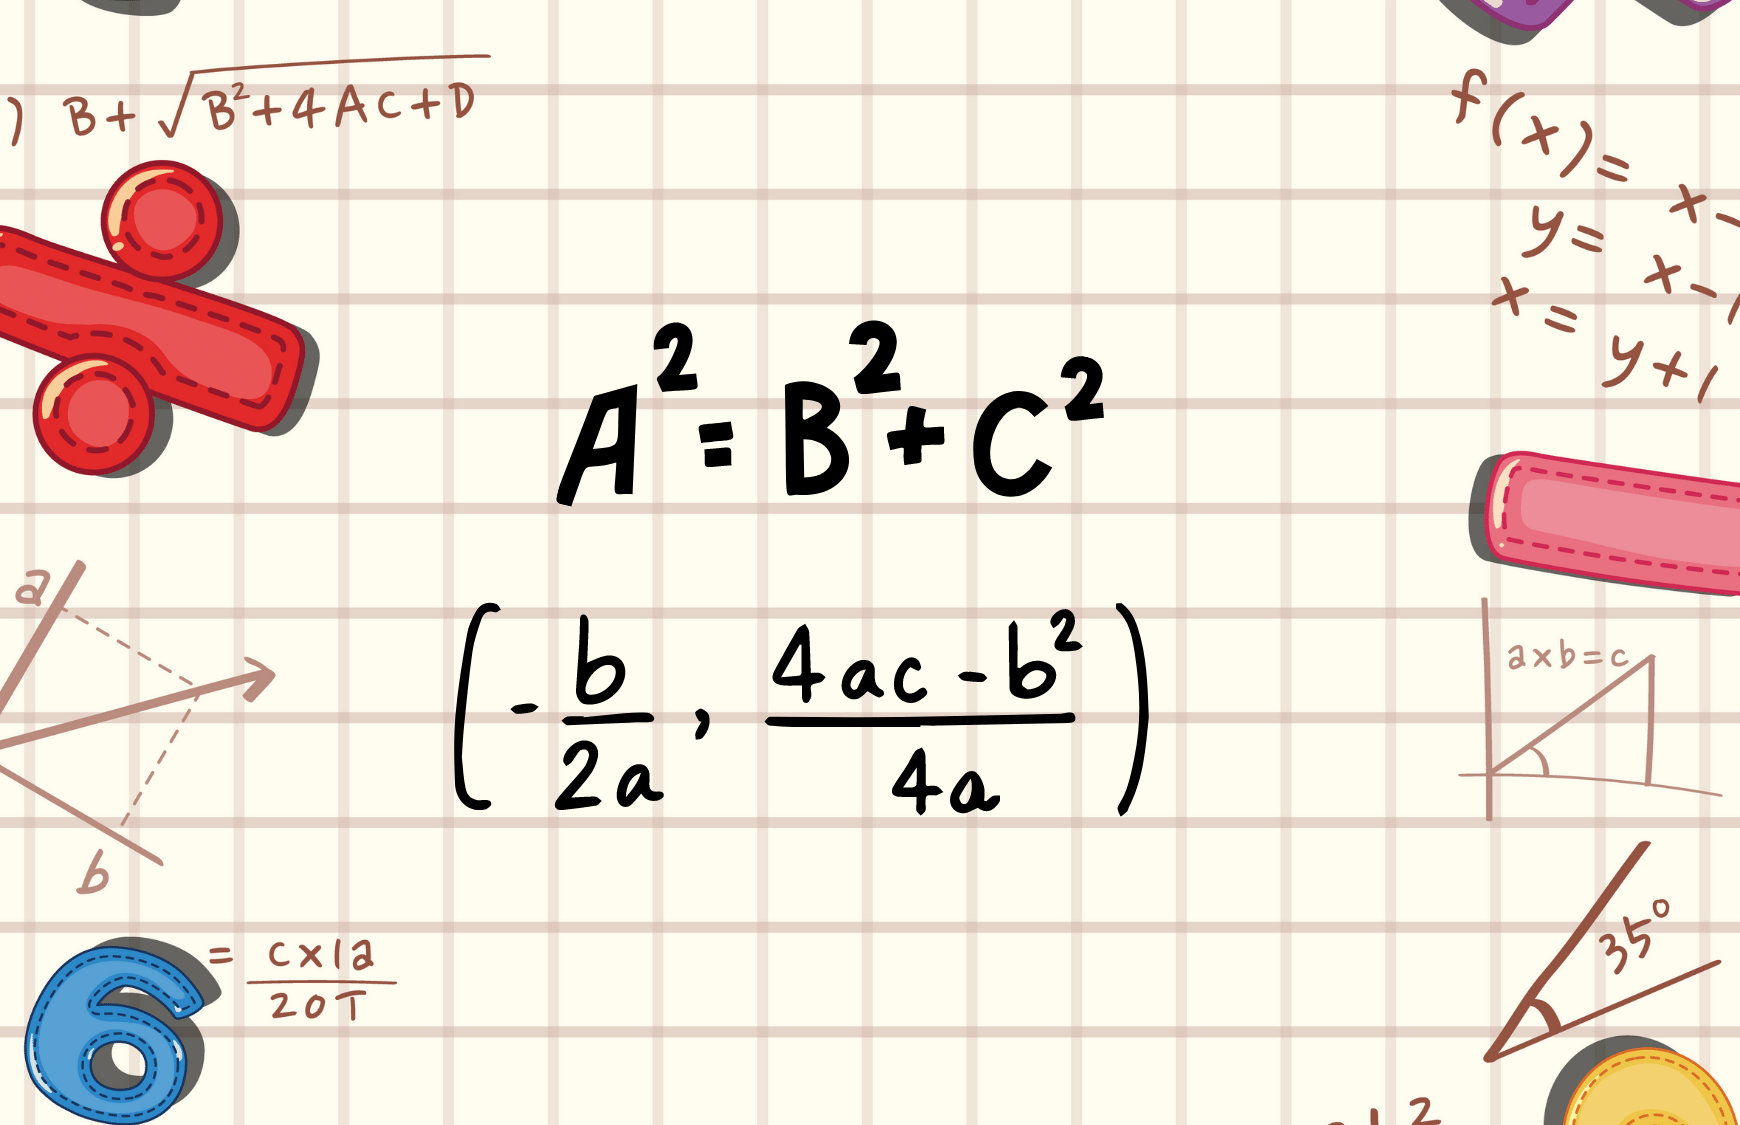 ) B+√B²+4AC+D
f(x)= x-
y= x-1
x= y+1
A²=B²+C²
a
(-b/2a, 4ac-b²/4a)
axb=c
b
35°
6
= cx1a/20T
2